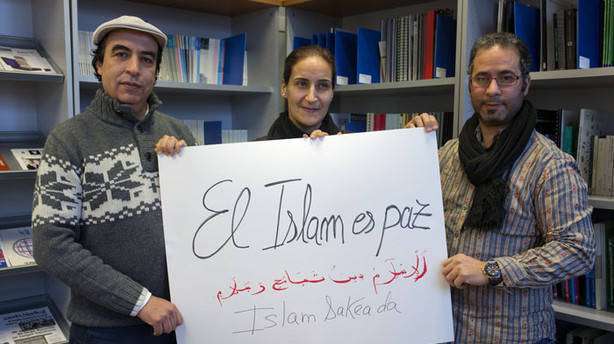 El Islam es paz
الإسلام دين تسامح وسلام
Islam Bakea da